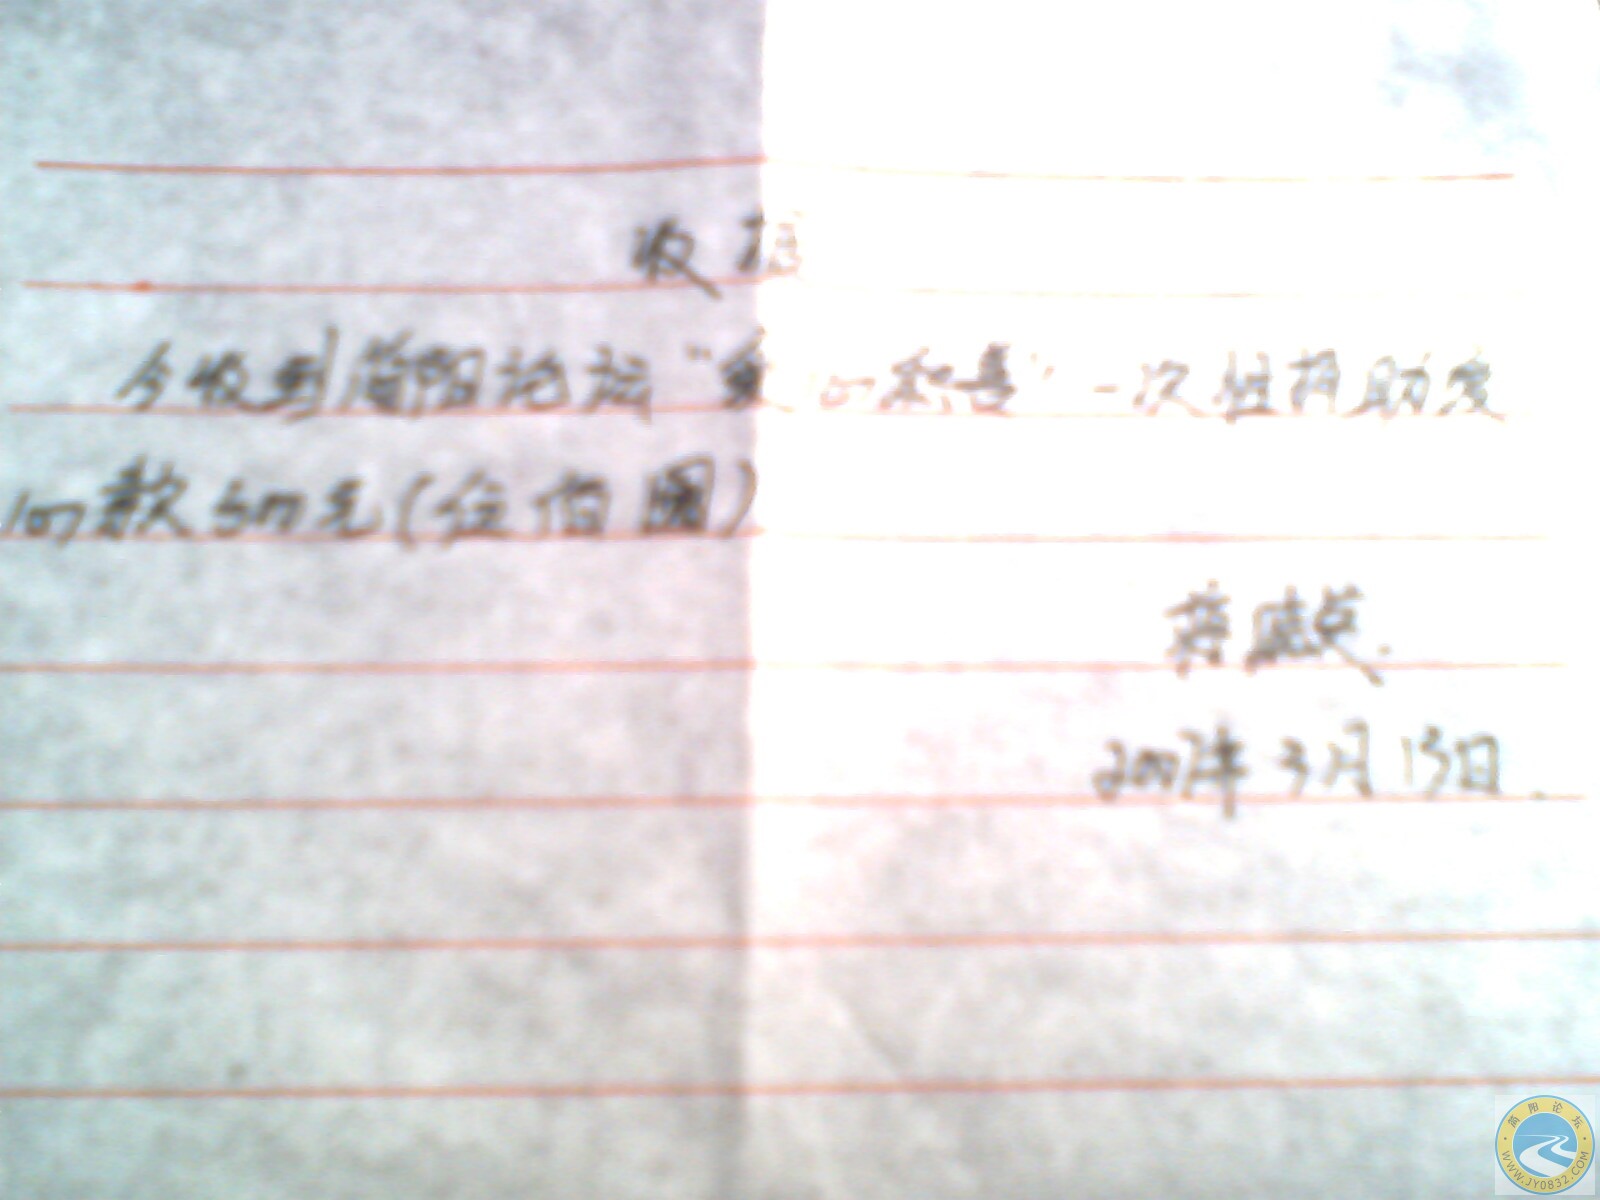 收据
今收到简阳论坛“爱心和善”一次性捐助爱
心款500元(伍佰圆)
蒋
2007年3月15日.
简阳论坛
WWW.JY0832.COM